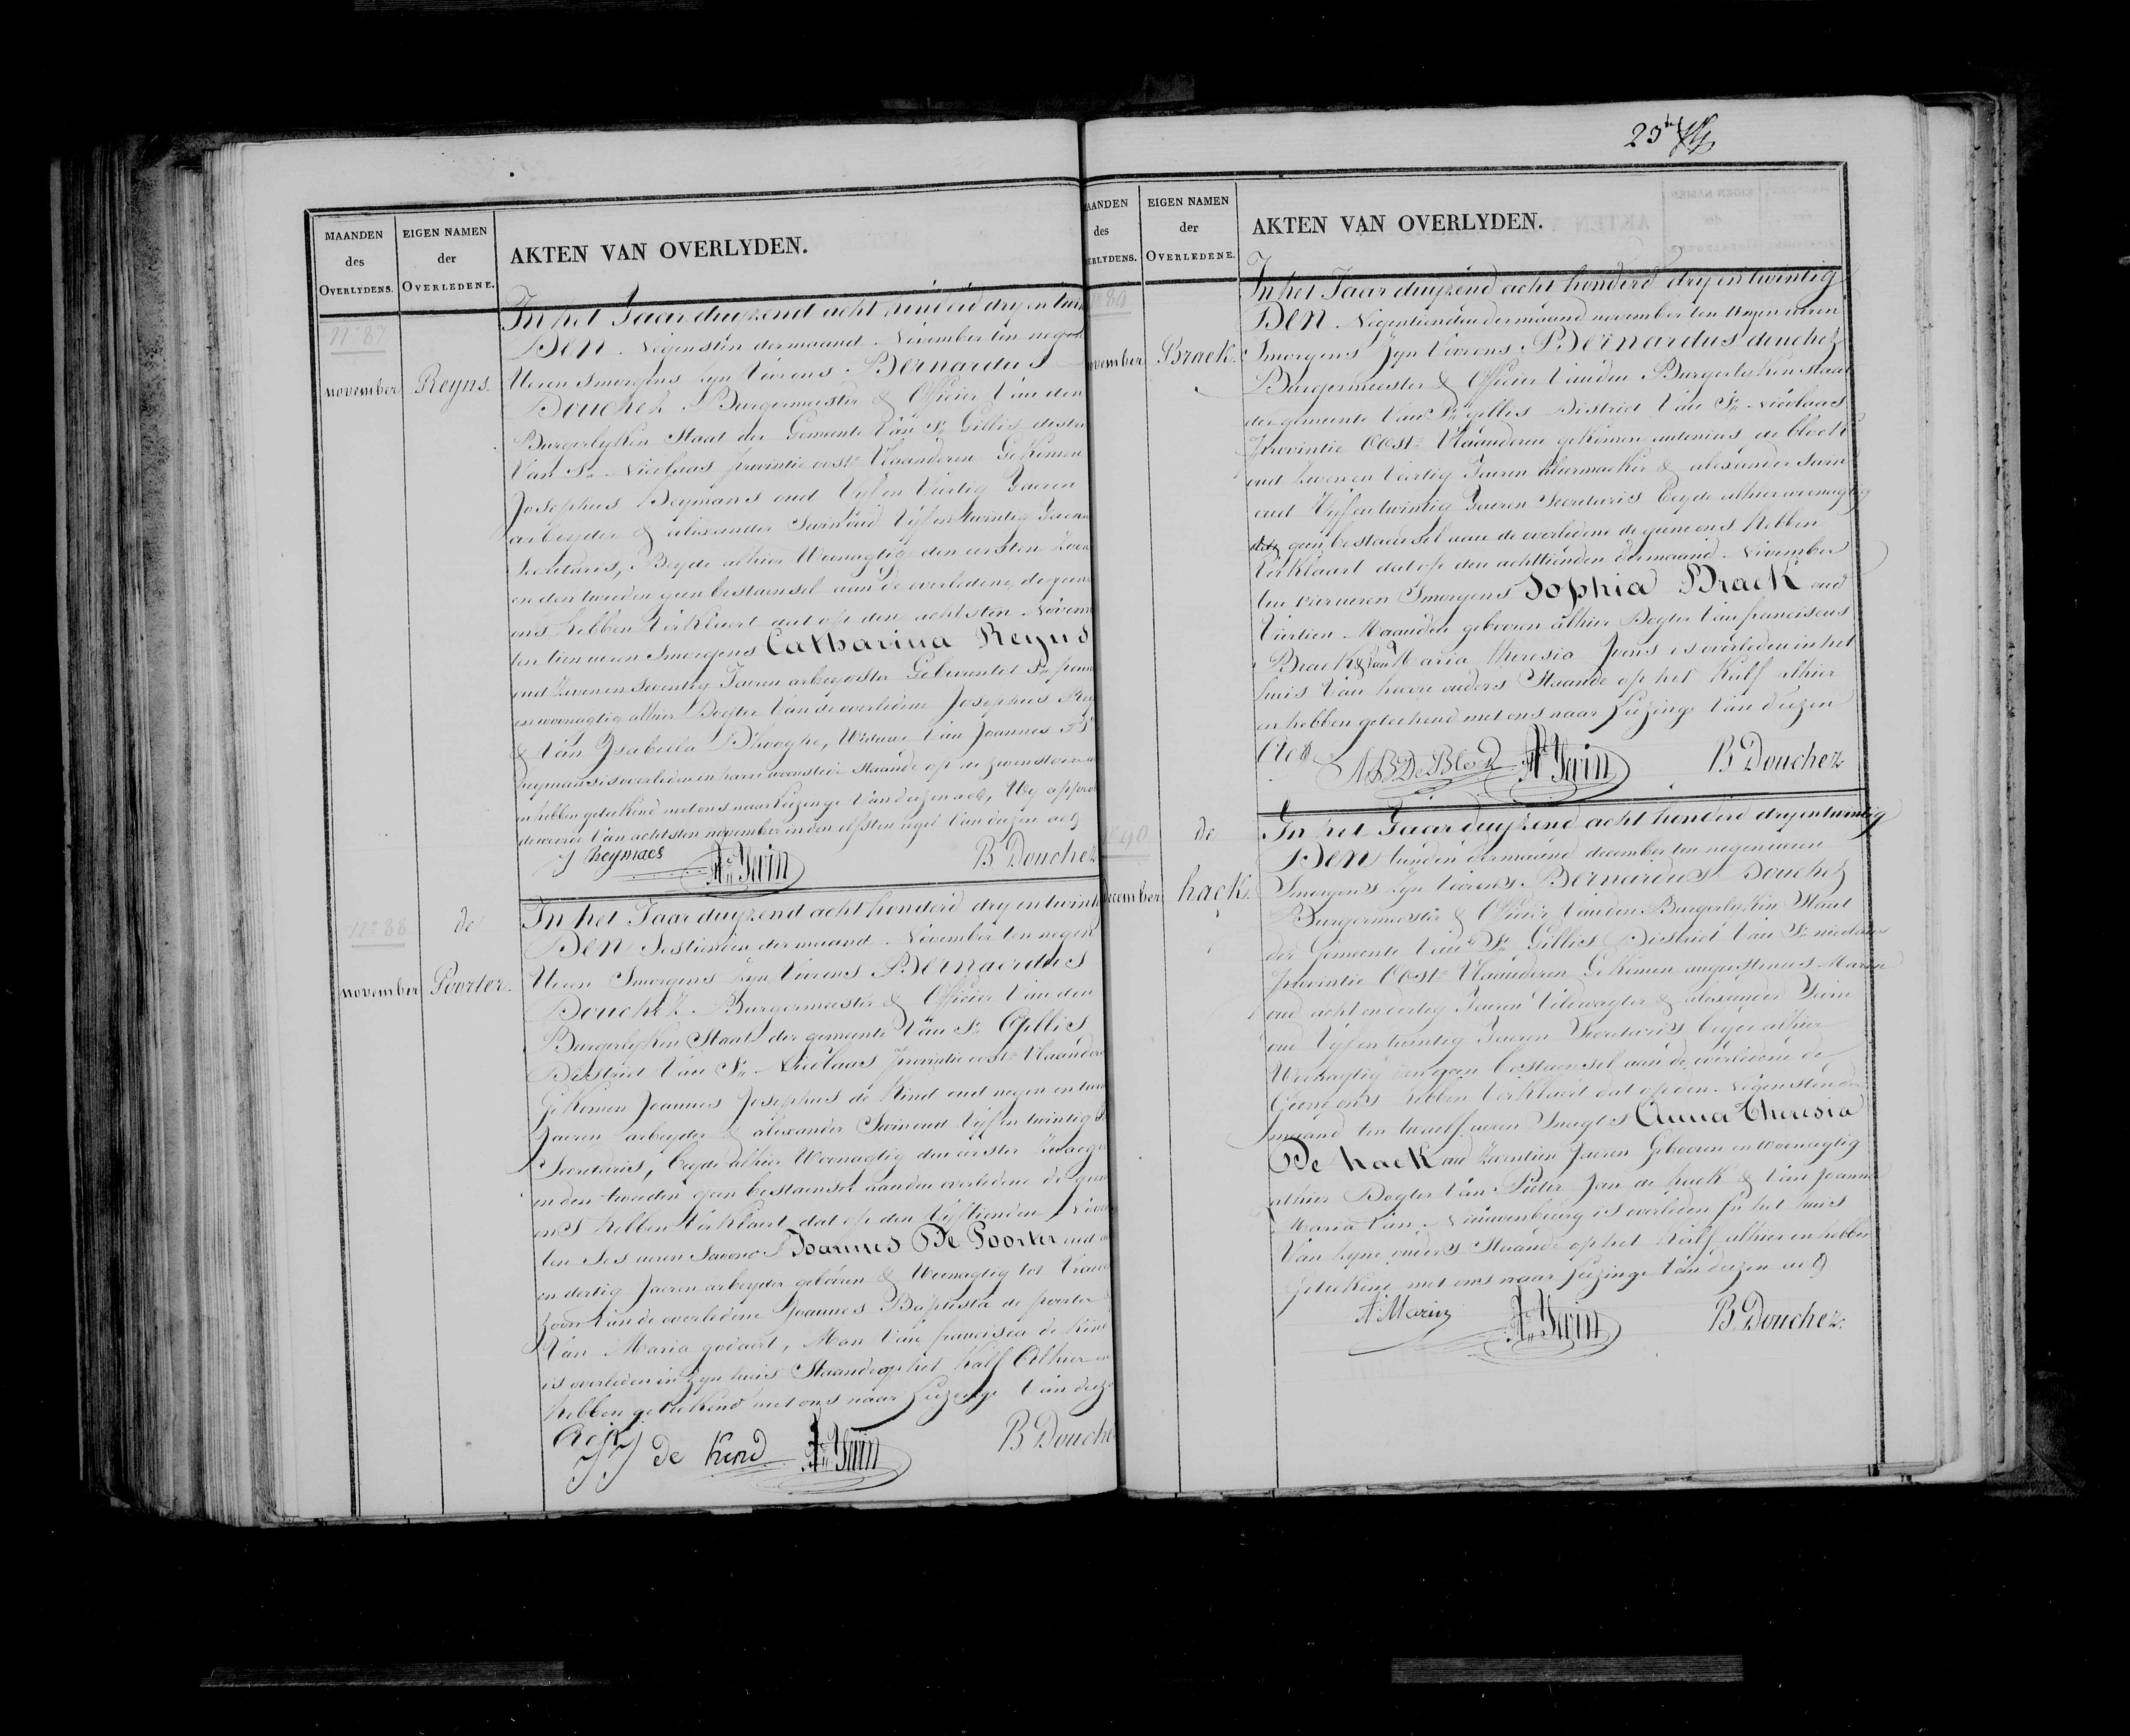 MAANDEN
des
OVERLYDENS.
EIGEN NAMEN
der
OVERLEDENE.
AKTEN VAN OVERLYDEN.
N° 87
november
Reyns.
In het Jaar duyzend acht honderd dry en twin
Den Negensten der maand November ten negen
Ueren Smorgens Zyn Voor ons Bernardus
Douchez Burgermeester & Officier Van den
Burgerlyken Staat der Gemeente Van St Gillis distri
Van St Nicolaas provintie oost Vlaanderen Gekomen
Josephus Heymans oud Vyf en Veertig Jaeren
arbeyder & alexander Swin oud Vyf en twintig Jaeren
Secretaris, Beyde alhier Woonagtig den eersten Zoon
en den tweeden geen bestaensel aan de overledene, de gene
ons hebben Verklaert dat op den achtsten Novem
ten tien ueren Smorgens Catharina Reyns
oud Zeven en Seventig Jaeren arbeydster Geboren tot St
en woonagtig alhier Dogter Van de overledene Josephus Rey
& Van Isabella D'hooghe, Weduwe Van Joannes
heymans is overleden in haere woonstede Staande op de
en hebben geteekend met ons naar Liezinge Van deezen act, Wy appro
de woorde Van achtsten november in den elfsten regel Van deezen act
J heymaes
A. Swin
B Douchez
N° 88
november
de
Poorter.
In het Jaar duyzend acht honderd dry en twint
Den Sestienden der maand November ten negen
Ueren Smorgens Zyn Voor ons Bernaerdus
Douchez Burgermeester & Officier Van den
Burgerlyken Staat der gemeente Van St Gillis
District Van St Nicolaas provintie oost Vlaandere
Gekomen Joannes Josephus de Kind oud negen en
Jaeren arbeyder & alexander Swin oud Vyf en twintig
Secretaris, beyde alhier Woonagtig den eersten
en den tweeden geen bestaensel aan den overledene de gene
ons hebben Verklaert dat op den Vyftienden
ten Ses ueren Savons Joannes De Poorter oud
en dertig Jaeren arbeyder geboren & Woonagtig tot
Zoon Van de overledene Joannes Baptista de poorter
Van Maria godaert, Man Van francisca de Kind
is overleden in Zyn huis Staande op het Kalf Alhier en
hebben geteekend met ons naar Liezinge Van deezen
Act
JJ de Kind
A. Swin
B Douche
MAANDEN
des
OVERLYDENS.
EIGEN NAMEN
der
OVERLEDENE.
AKTEN VAN OVERLYDEN.
N° 89
november
Braek.
In het Jaar duyzend acht honderd dry en twintig
Den Negentienden der maand november ten negen ueren
Smorgens Zyn Voor ons Bernardus douchez
Burgermeester & Officier Van den Burgerlyken Staat
der gemeente Van St gillis District Van St Nicolaas
provintie Oost Vlaanderen gekomen antonius de block
oud Zeven en Veertig Jaeren & alexander Swin
oud Vyf en twintig Jaeren Secretaris beyde alhier woonagtig
geen bestaensel aan de overledene de gene ons hebben
Verklaart dat op den achttienden der maand November
ten vier ueren Smorgens Sophia Braek oud
Viertien Maanden gebooren alhier Dogter Van franciscus
Braek & Van Maria theresia is overleden in het
huis Van haere ouders Staande op het Kalf alhier
en hebben geteekend met ons naar Liezinge Van deezen
Act
A B De Block
A. Swin
B Douchez
N° 90
december
de
hack.
In het Jaar duyzend acht honderd dry en twintig
Den tienden der maand december ten negen ueren
Smorgens Zyn Voor ons Bernardus Douchez
Burgermeester & Officier Van den Burgerlyken Staat
der Gemeente Van St Gillis District Van St nicolaas
provintie Oost Vlaanderen Gekomen augustinus Marin
oud acht en dertig Jaeren Veldwagter & alexander Swin
oud Vyf en twintig Jaeren Secretaris beyde alhier
Woonagtig geen bestaensel aan de overledene de
Gene ons hebben Verklaert dat op den Negensten der
maand ten twaelf ueren Snagts Anna Theresia
De hack oud Zeventien Jaeren Gebooren en woonagtig
alhier Dogter Van Pieter Jan de hack & Van Joanna
Maria Van Nieuwenburg is overleden in het huis
Van Zyne ouders Staande op het Kalf alhier en hebben
geteekend met ons naar Liezinge Van deezen act
A. Marin
A. Swin
B. Douchez